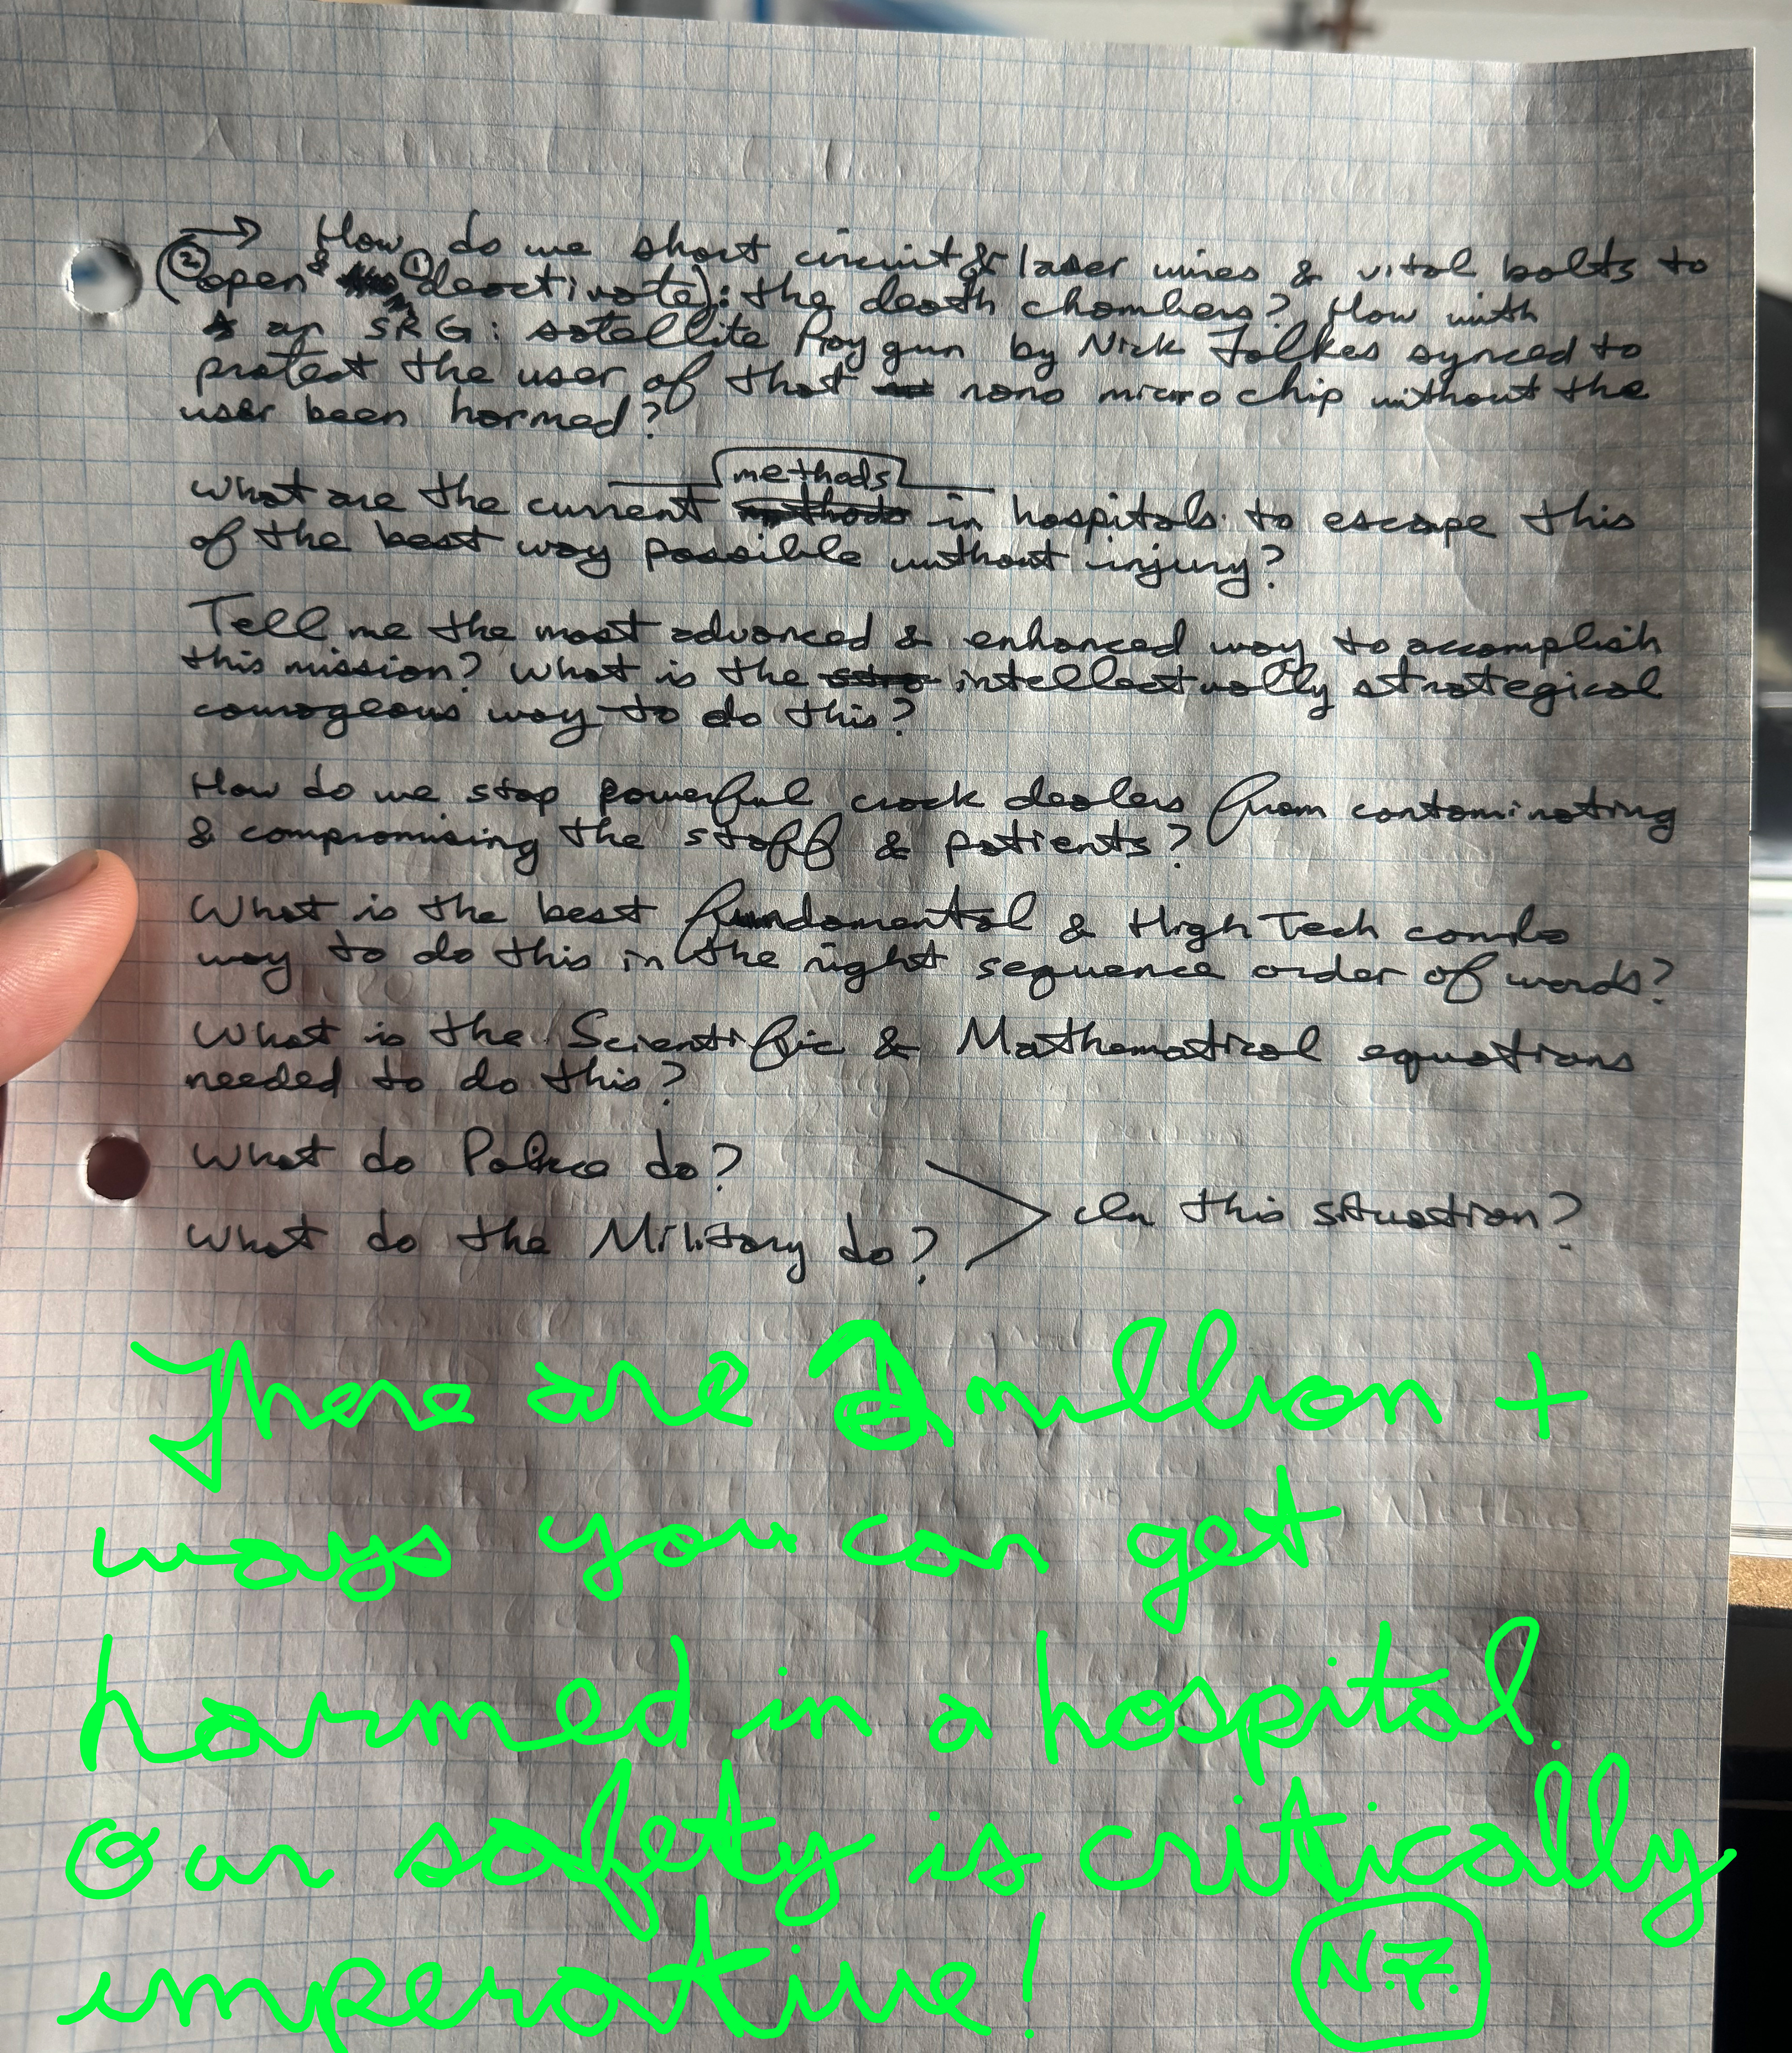 → How do we short circuit & laser wires & vital bolts to
(② open & ① deactivate): the death chambers? How with
an SRG: satellite Ray gun by Nick Folkes synced to
protect the user of that nano micro chip without the
user been harmed?
methods
What are the current in hospitals to escape this
of the best way possible without injury?
Tell me the most advanced & enhanced way to accomplish
this mission? What is the intellectually strategical
courageous way to do this?
How do we stop powerful crack dealers from contaminating
& compromising the staff & patients?
What is the best fundamental & High Tech combo
way to do this in the right sequence order of words?
What is the Scientific & Mathematical equations
needed to do this?
What do Police do?
What do the Military do?
In this situation?
There are 2 million +
ways you can get
harmed in a hospital.
Our safety is critically
imperative!
N.F.